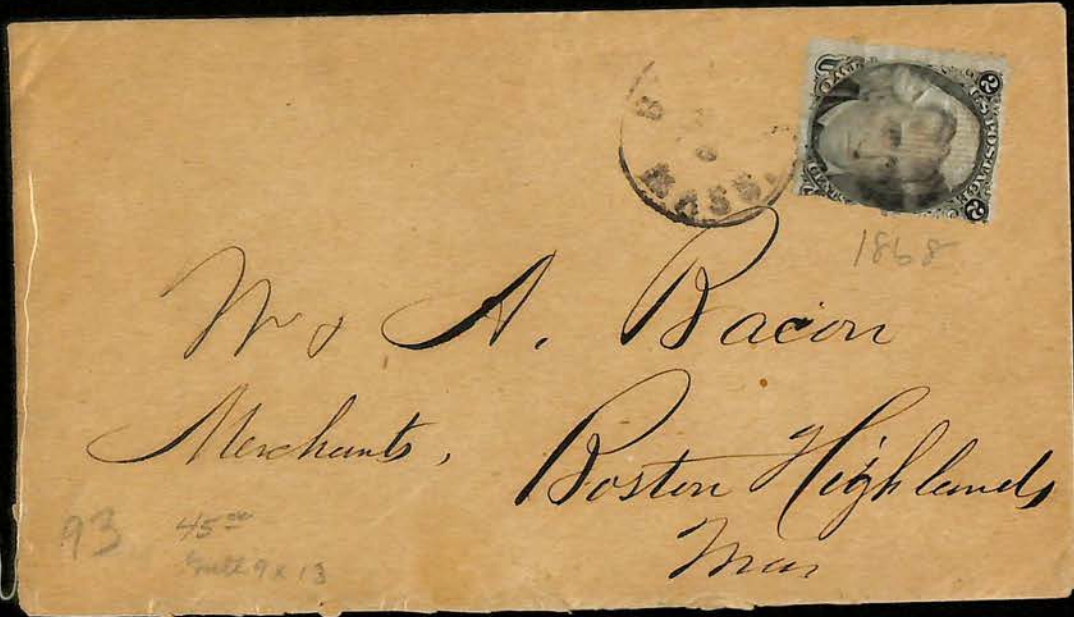 MASS.
U.S. POSTAGE
2 2
1868
W & A. Bacon
Merchants, Boston Highlands
Mas
93 45⁰⁰
Grill 9 x 13